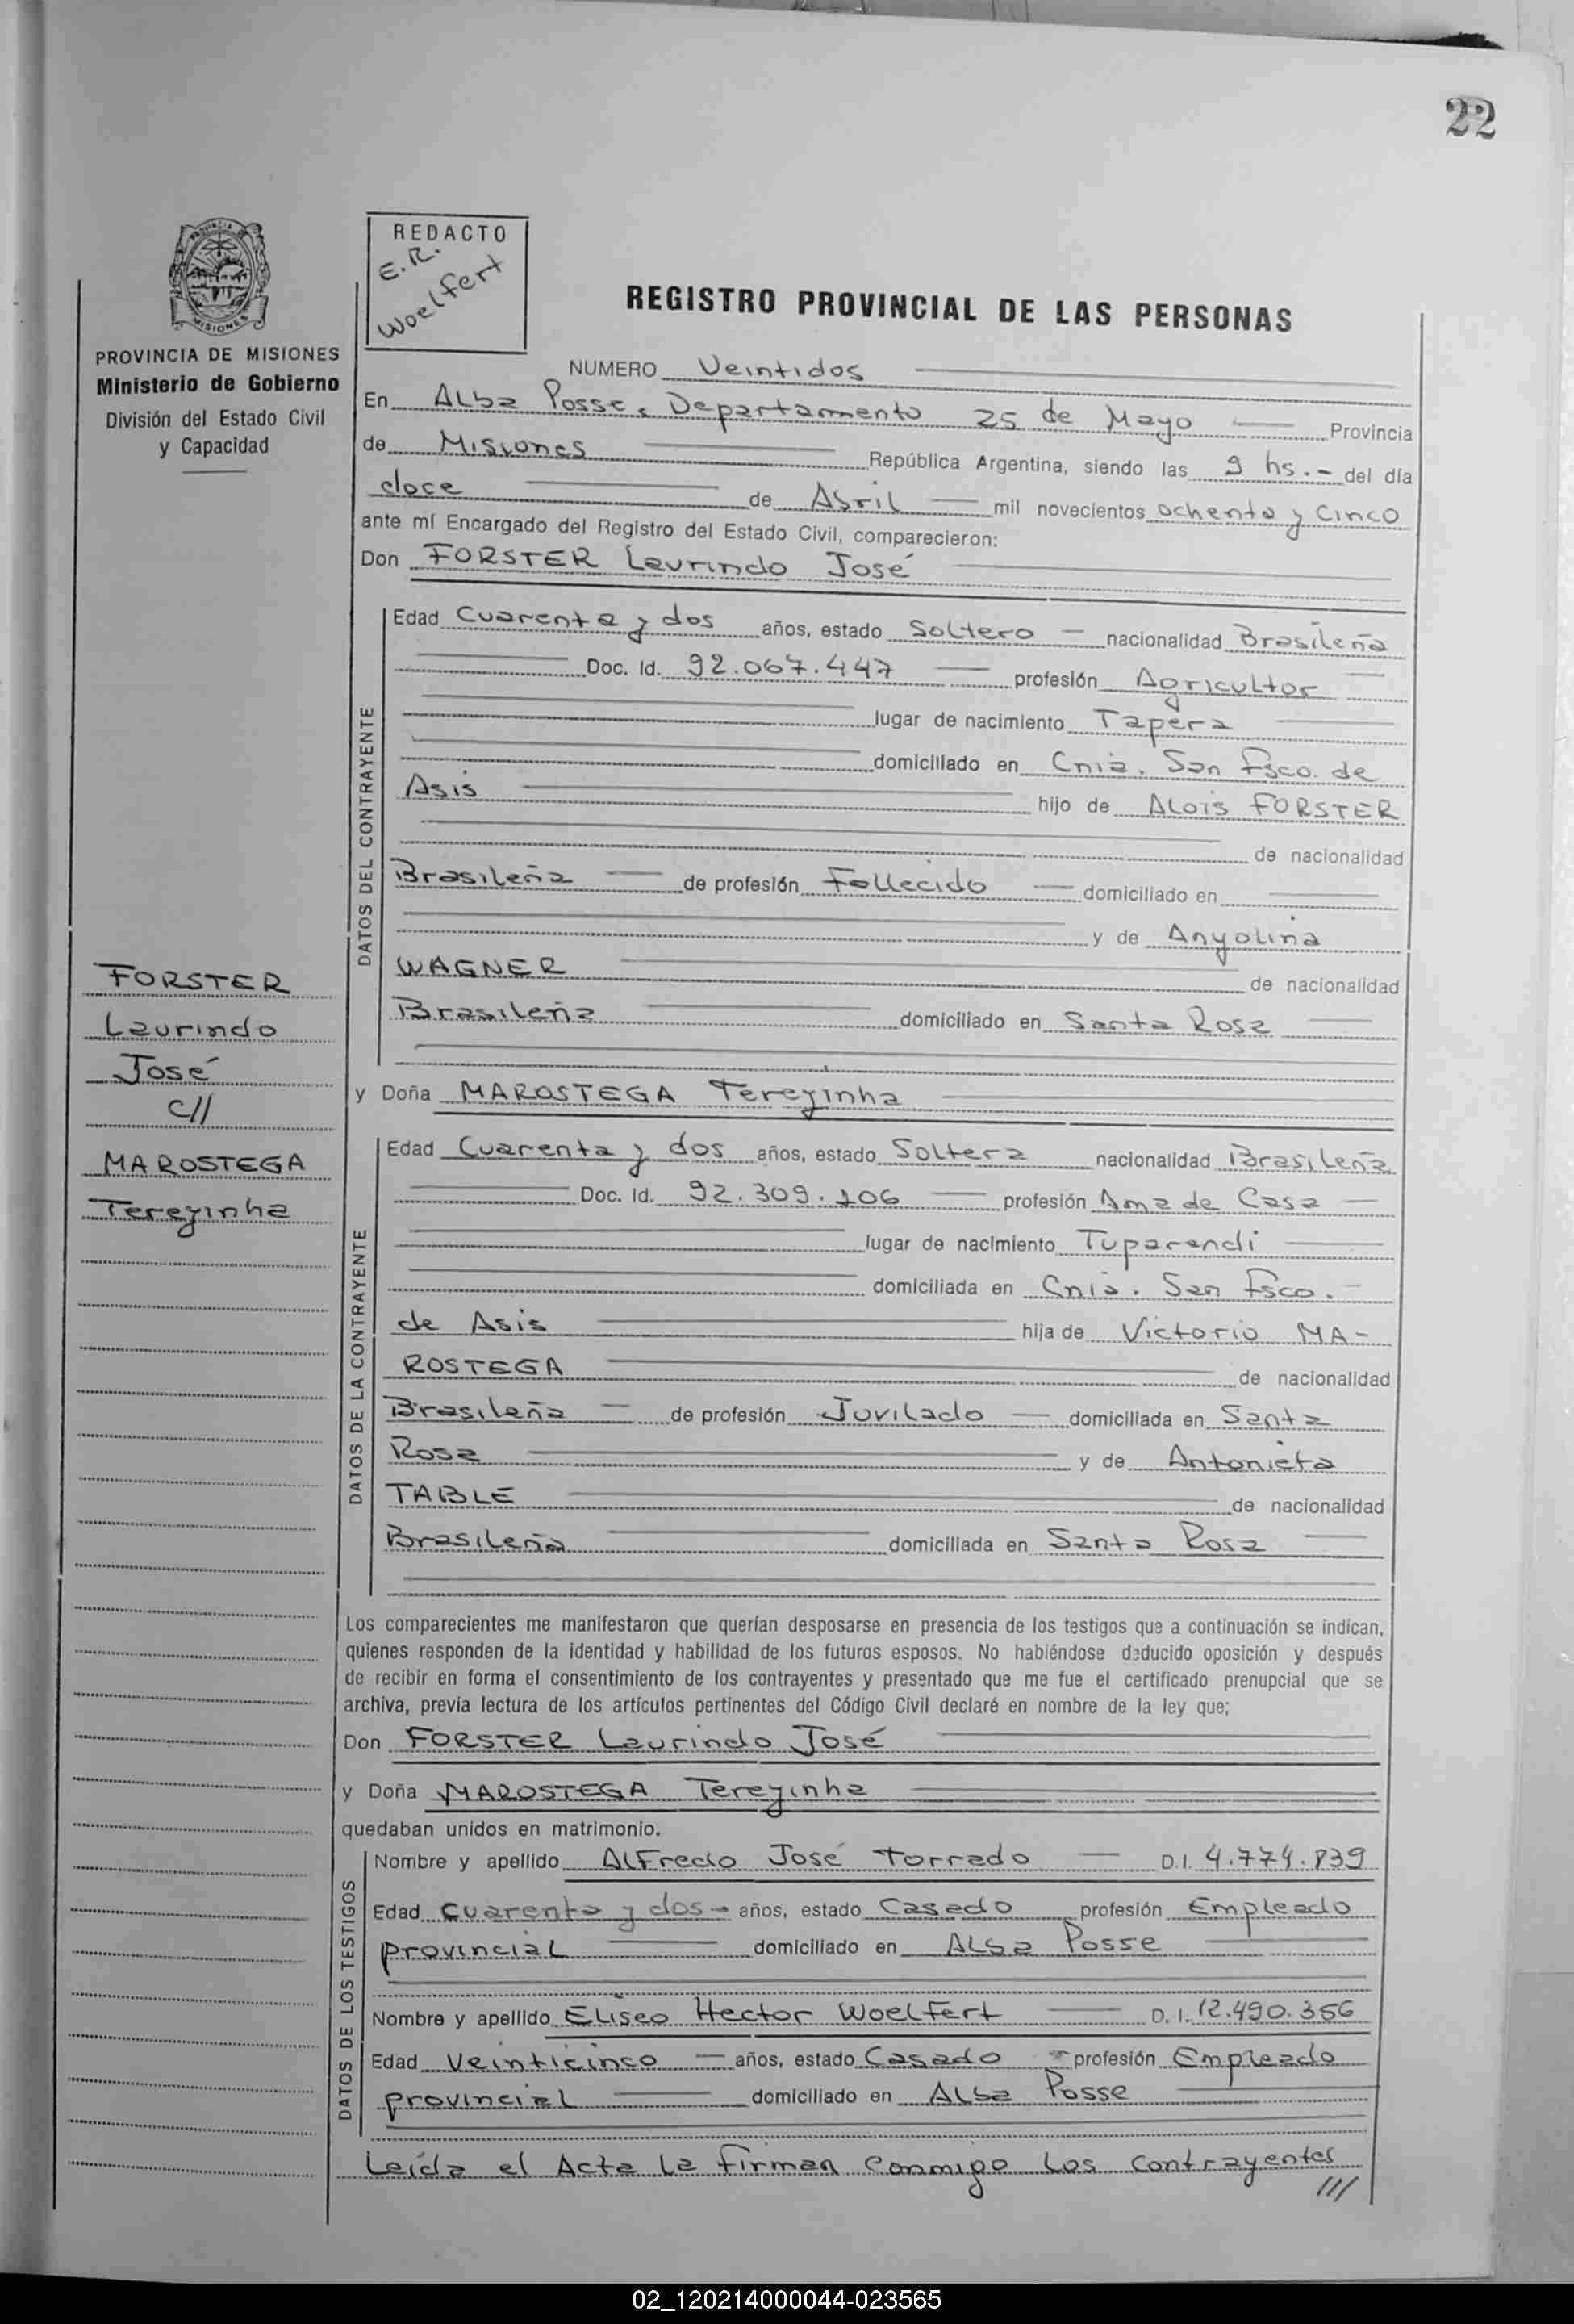 22
REDACTO
E.R.
Woelfert
PROVINCIA DE MISIONES
MISIONES
PROVINCIA DE MISIONES
Ministerio de Gobierno
División del Estado Civil
y Capacidad
REGISTRO PROVINCIAL DE LAS PERSONAS
NUMERO Veintidos
En Alba Posse, Departamento 25 de Mayo Provincia
de Misiones República Argentina, siendo las 9 hs.- del día
doce de Abril mil novecientos ochenta y Cinco
ante mí Encargado del Registro del Estado Civil, comparecieron:
Don FORSTER Laurindo José
DATOS DEL CONTRAYENTE
Edad Cuarenta y dos años, estado Soltero nacionalidad Brasileña
Doc. Id. 92.067.447 profesión Agricultor
lugar de nacimiento Tapera
domiciliado en Cnia. San Fsco. de
Asis hijo de Alois FORSTER
de nacionalidad
Brasileña de profesión Fallecido domiciliado en
y de Anyolina
WAGNER de nacionalidad
Brasileña domiciliado en Santa Rosa
FORSTER
Laurindo
José
c//
MAROSTEGA
Tereyinha
y Doña MAROSTEGA Tereyinha
DATOS DE LA CONTRAYENTE
Edad Cuarenta y dos años, estado Soltera nacionalidad Brasileña
Doc. Id. 92.309.106 profesión Ama de Casa
lugar de nacimiento Tuparendi
domiciliada en Cnia. San Fsco.
de Asis hija de Victorio MA-
ROSTEGA de nacionalidad
Brasileña de profesión Juvilado domiciliada en Santa
Rosa y de Antonieta
TABLE de nacionalidad
Brasileña domiciliada en Santa Rosa
Los comparecientes me manifestaron que querían desposarse en presencia de los testigos que a continuación se indican,
quienes responden de la identidad y habilidad de los futuros esposos. No habiéndose deducido oposición y después
de recibir en forma el consentimiento de los contrayentes y presentado que me fue el certificado prenupcial que se
archiva, previa lectura de los artículos pertinentes del Código Civil declaré en nombre de la ley que;
Don FORSTER Laurindo José
y Doña MAROSTEGA Tereyinha
quedaban unidos en matrimonio.
DATOS DE LOS TESTIGOS
Nombre y apellido Alfredo José Torrado D.I. 4.774.839
Edad Cuarenta y dos años, estado Casado profesión Empleado
provincial domiciliado en Alba Posse
Nombre y apellido Eliseo Hector Woelfert D.I. 12.490.356
Edad Veinticinco años, estado Casado profesión Empleado
provincial domiciliado en Alba Posse
Leída el Acta la firman conmigo los contrayentes
///
02_120214000044-023565